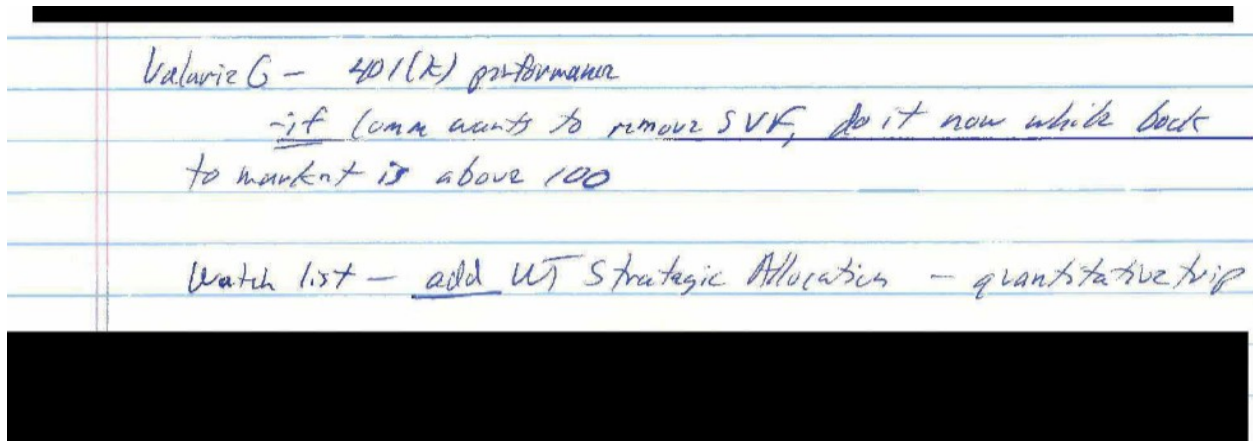 Valarie G - 401(k) performance
- if Comm wants to remove SVF, do it now while book
to market is above 100
Watch list - add WT Strategic Allocation - quantitative trip